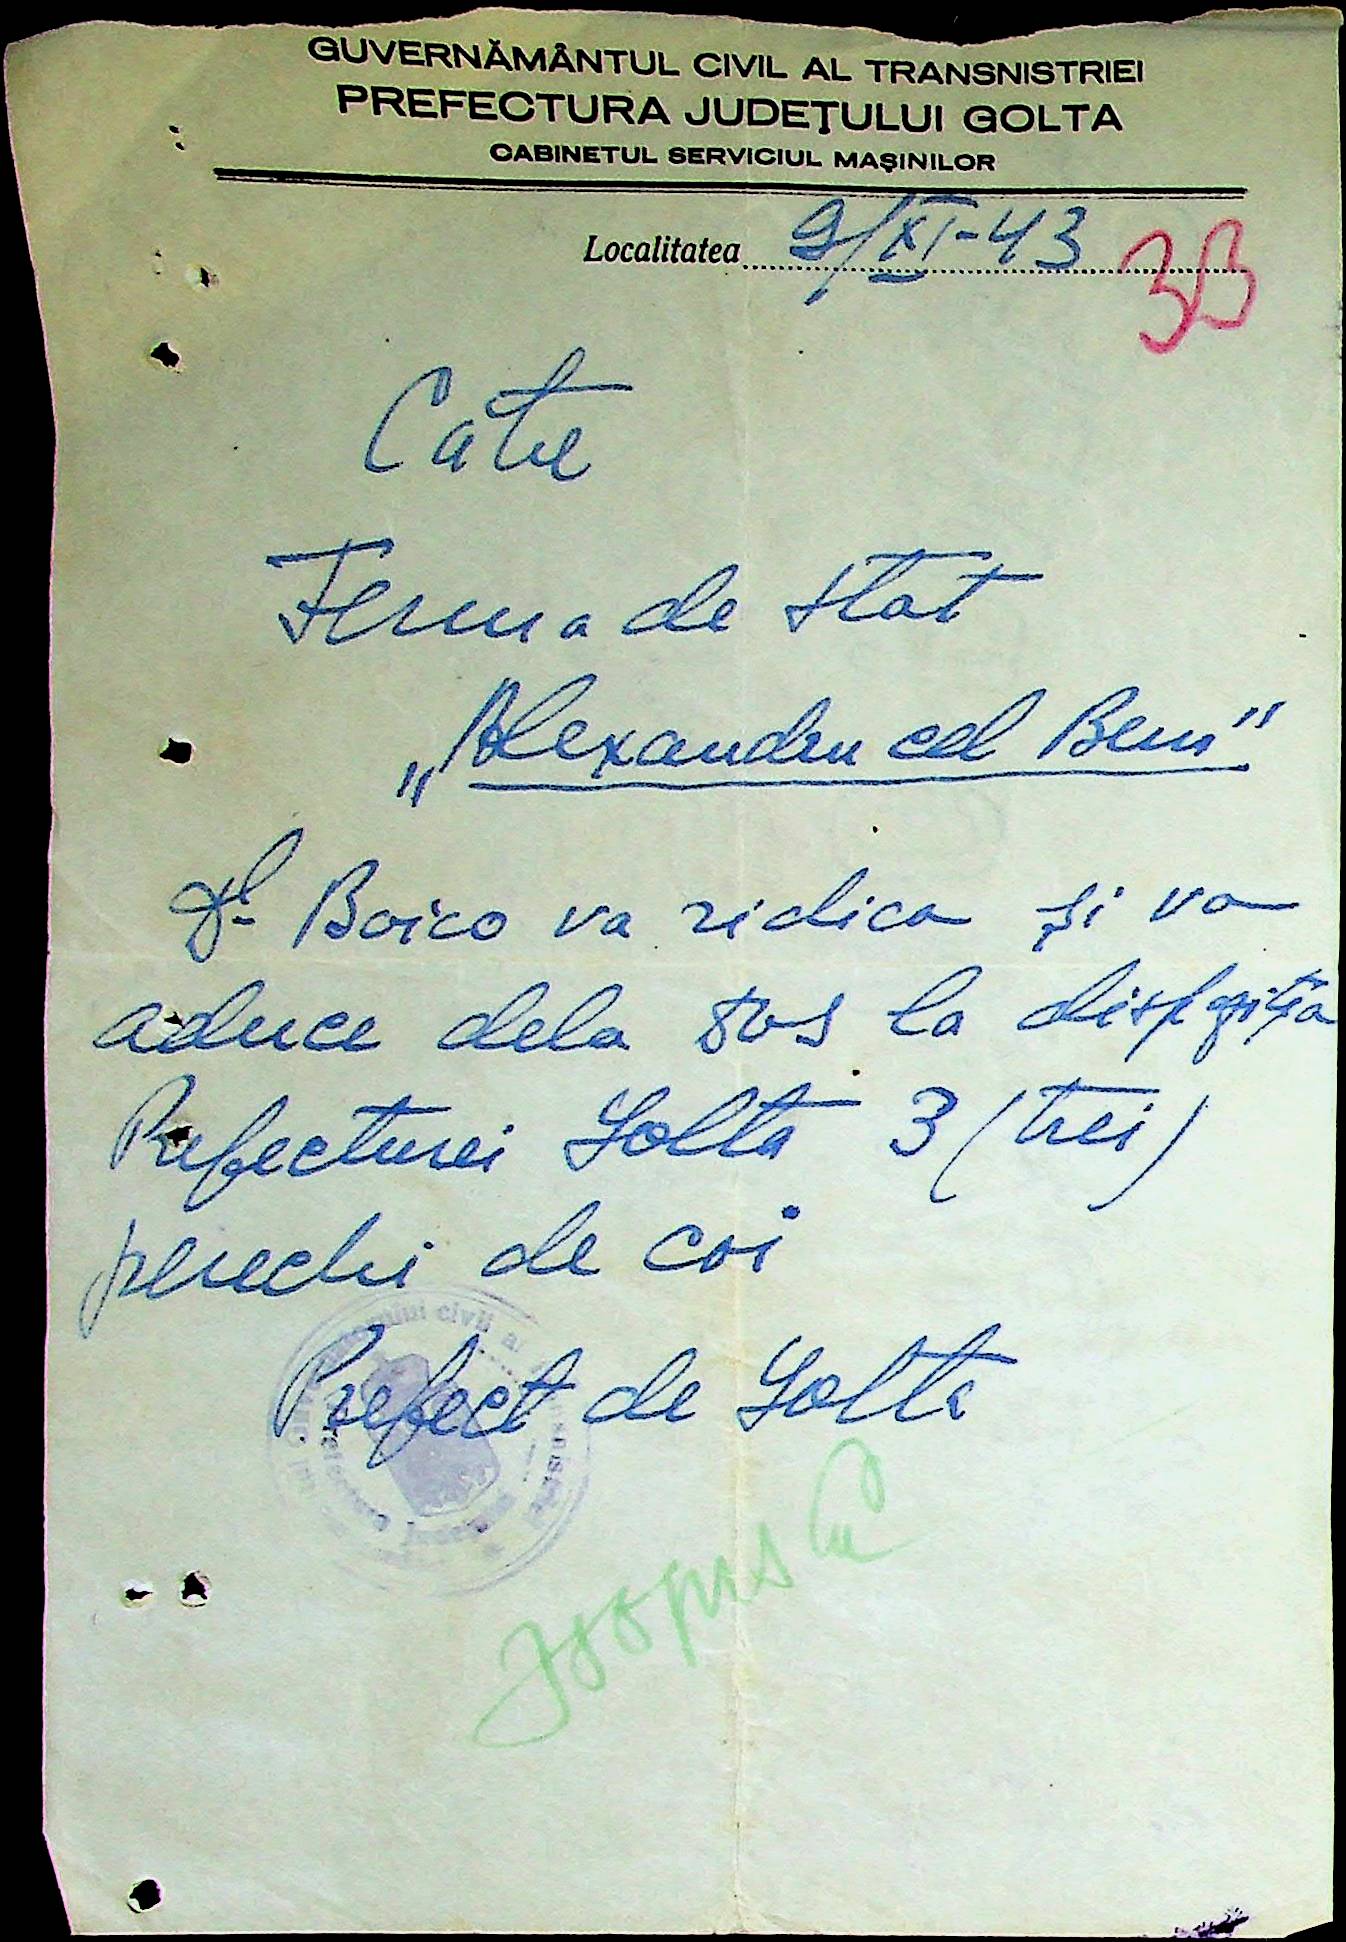 GUVERNĂMÂNTUL CIVIL AL TRANSNISTRIEI
PREFECTURA JUDEŢULUI GOLTA
CABINETUL SERVICIUL MAŞINILOR
Localitatea 9/XI-43 33
Catre
Ferma de Stat
„Alexandru cel Bun"
Dl. Boico va ridica şi va
aduce dela Dvs la dispoziţia
Prefecturei Golta 3 (trei)
perechi de cai
Prefect de Golta
civil al